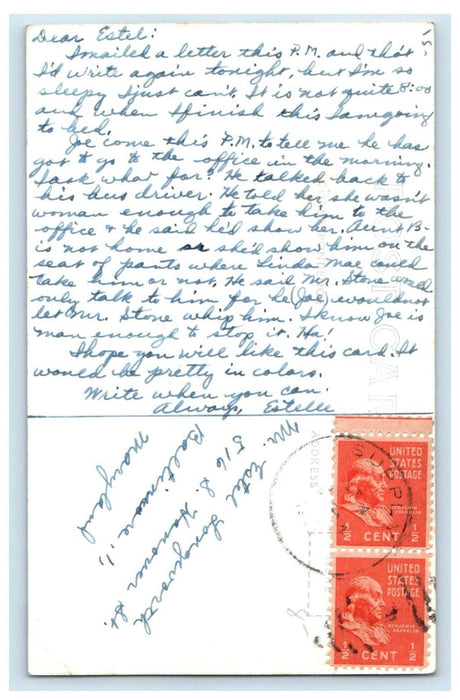 Dear Estel:
I mailed a letter this P.M. and tho't
I'd write again tonight, but I'm so
sleepy I just can't. It is not quite 8:00
and when I finish this I am going
to bed.
Joe come this P.M. to tell me he has
got to go to the office in the morning.
I ask what for? He talked back to
his bus driver. He told her she wasn't
woman enough to take him to the
office & he said he'd show her. Aunt B-
is not home or she'd show him on the
seat of pants where Linda Mae could
take him or not. He said Mr. Stone would
only talk to him for he (Joe) would not
let Mr. Stone whip him. I know Joe is
man enough to stop it. Ha!
I hope you will like this card. It
would be pretty in colors.
Write when you can.
Always, Estelle
Mr. Estel Longsworth
516 S. Hanover St.
Baltimore "
Maryland
ADDRESS
UNITED
STATES
POSTAGE
BENJAMIN
FRANKLIN
1/2 CENT 1/2
UNITED
STATES
POSTAGE
BENJAMIN
FRANKLIN
1/2 CENT 1/2